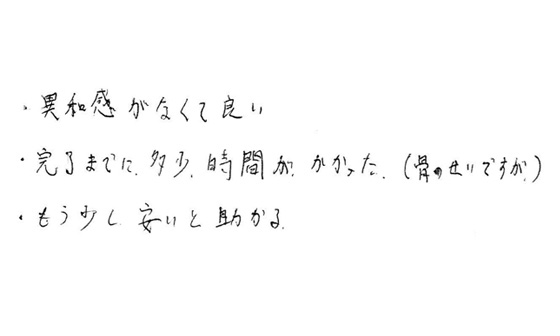 ・異和感がなくて良い
・完了までに、多少、時間が、かかった、(骨のせいですが、)
・もう少し、安いと助かる、